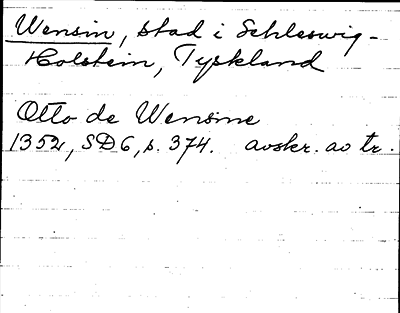 Wensin, stad i Schleswig-
Holstein, Tyskland
Otto de Wensine
1352, SD6, s. 374. avskr. av tr.